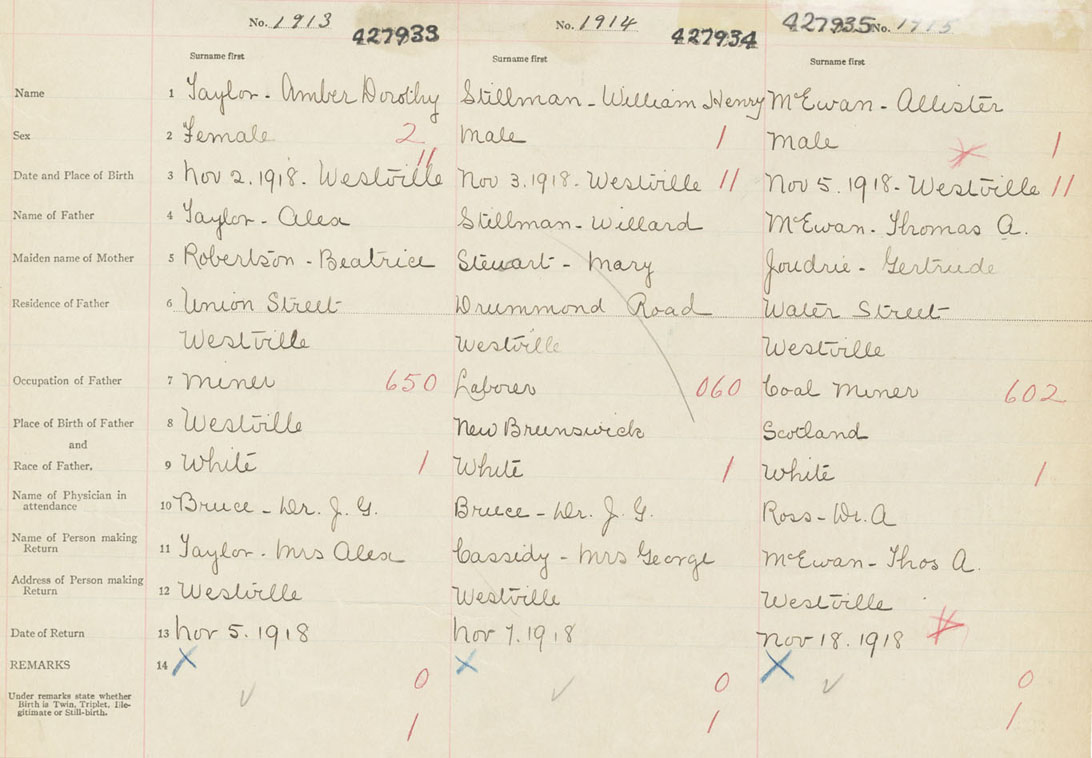 No. 1913 427933 No. 1914 427934 427935 No. 1915
Surname first Surname first Surname first
Name 1 Taylor - Amber Dorothy Stillman - William Henry McEwan - Allister
Sex 2 Female 2 Male 1 Male 1
Date and Place of Birth 3 Nov 2. 1918. Westville 11 Nov 3. 1918. Westville 11 Nov 5. 1918 - Westville 11
Name of Father 4 Taylor - Alex Stillman - Willard McEwan - Thomas A.
Maiden name of Mother 5 Robertson - Beatrice Stewart - Mary Joudrie - Gertrude
Residence of Father 6 Union Street Drummond Road Water Street
Westville Westville Westville
Occupation of Father 7 Miner 650 Laborer 060 Coal Miner 602
Place of Birth of Father 8 Westville New Brunswick Scotland
and
Race of Father. 9 White 1 White 1 White 1
Name of Physician in
attendance 10 Bruce - Dr. J. G. Bruce - Dr. J. G. Ross - Dr. A
Name of Person making
Return 11 Taylor - Mrs Alex Cassidy - Mrs George McEwan - Thos A.
Address of Person making
Return 12 Westville Westville Westville
Date of Return 13 Nov 5. 1918 Nov 7. 1918 Nov 18. 1918
REMARKS 14 X X X
0 0 0
Under remarks state whether
Birth is Twin, Triplet, Ille-
gitimate or Still-birth.
1 1 1